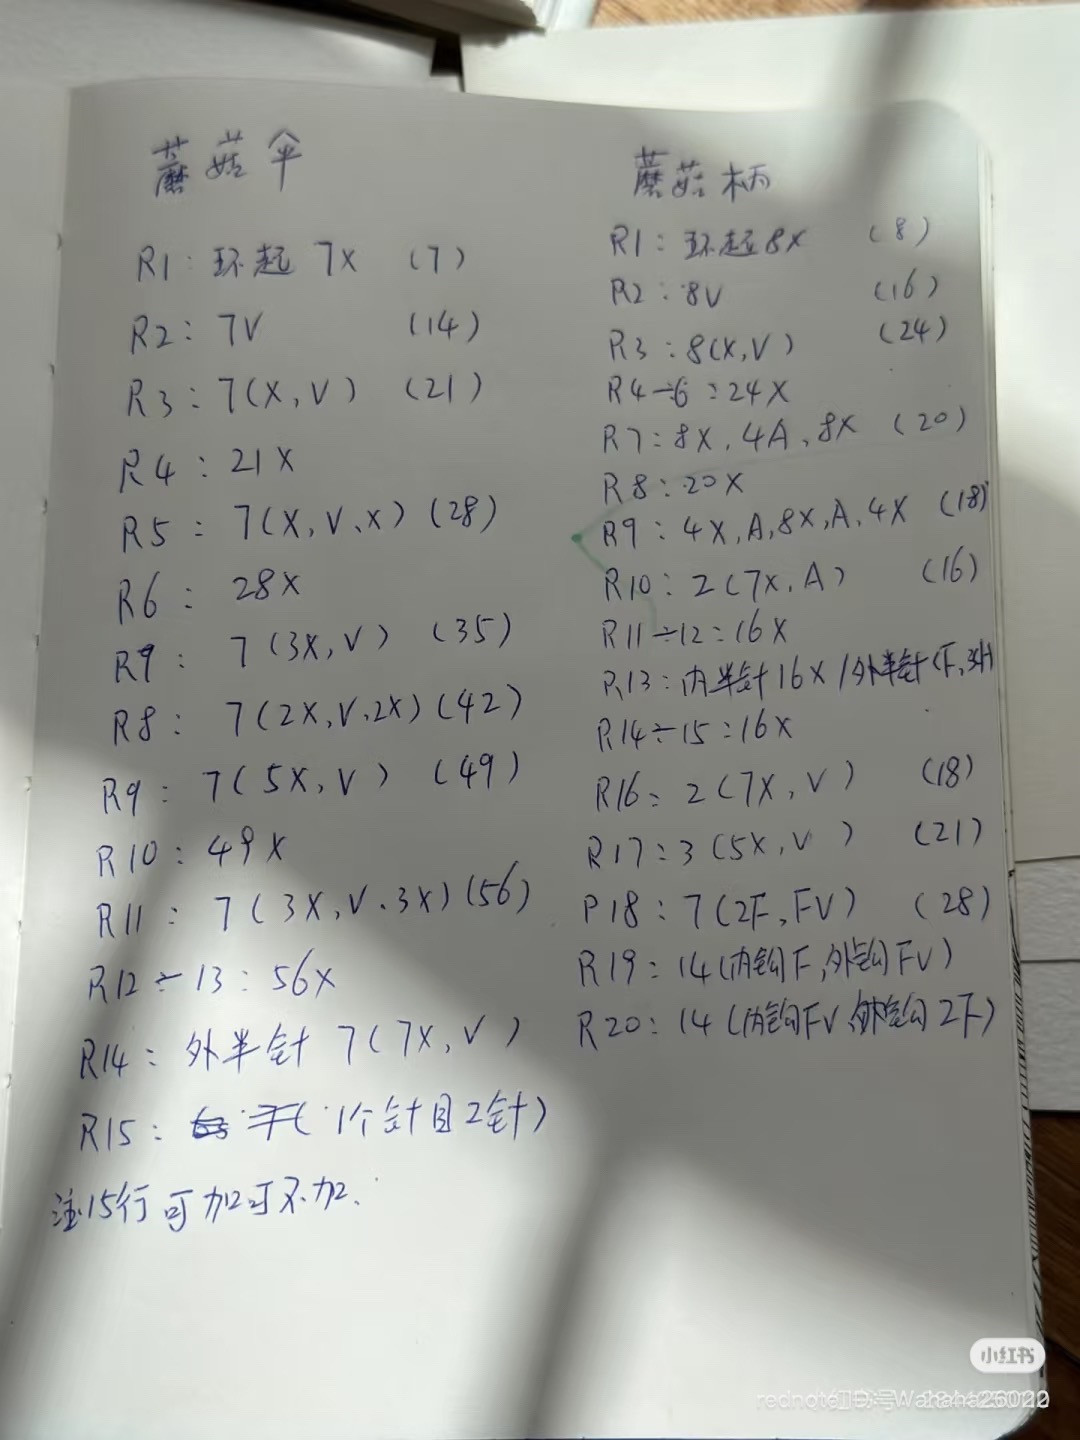 蘑菇伞
R1: 环起 7X (7)
R2: 7V (14)
R3: 7(X, V) (21)
R4: 21X
R5: 7(X, V、X) (28)
R6: 28X
7(3X, V) (35)
R8: 7(2X, V、2X) (42)
R9: 7(5X, V) (49)
R10: 49X
R11: 7(3X, V、3X) (56)
R12÷13: 56X
R14: 外半针 7(7X, V)
R15: (1个针目2针)
注15行可加可不加、
蘑菇柄
R1: 环起8X (8)
R2: 8V (16)
R3: 8(X, V) (24)
R4÷6: 24X
R7: 8X、4A、8X (20)
R8: 20X
R9: 4X, A, 8X, A, 4X (18)
R10: 2(7X, A) (16)
R11÷12: 16X
R13: 内半针16X/外半针(F,
R14÷15: 16X
R16: 2(7X, V) (18)
R17: 3(5X, V) (21)
R18: 7(2F, FV) (28)
R19: 14(内钩F, 外钩FV)
R20: 14(内钩FV、外钩2F)
小红书